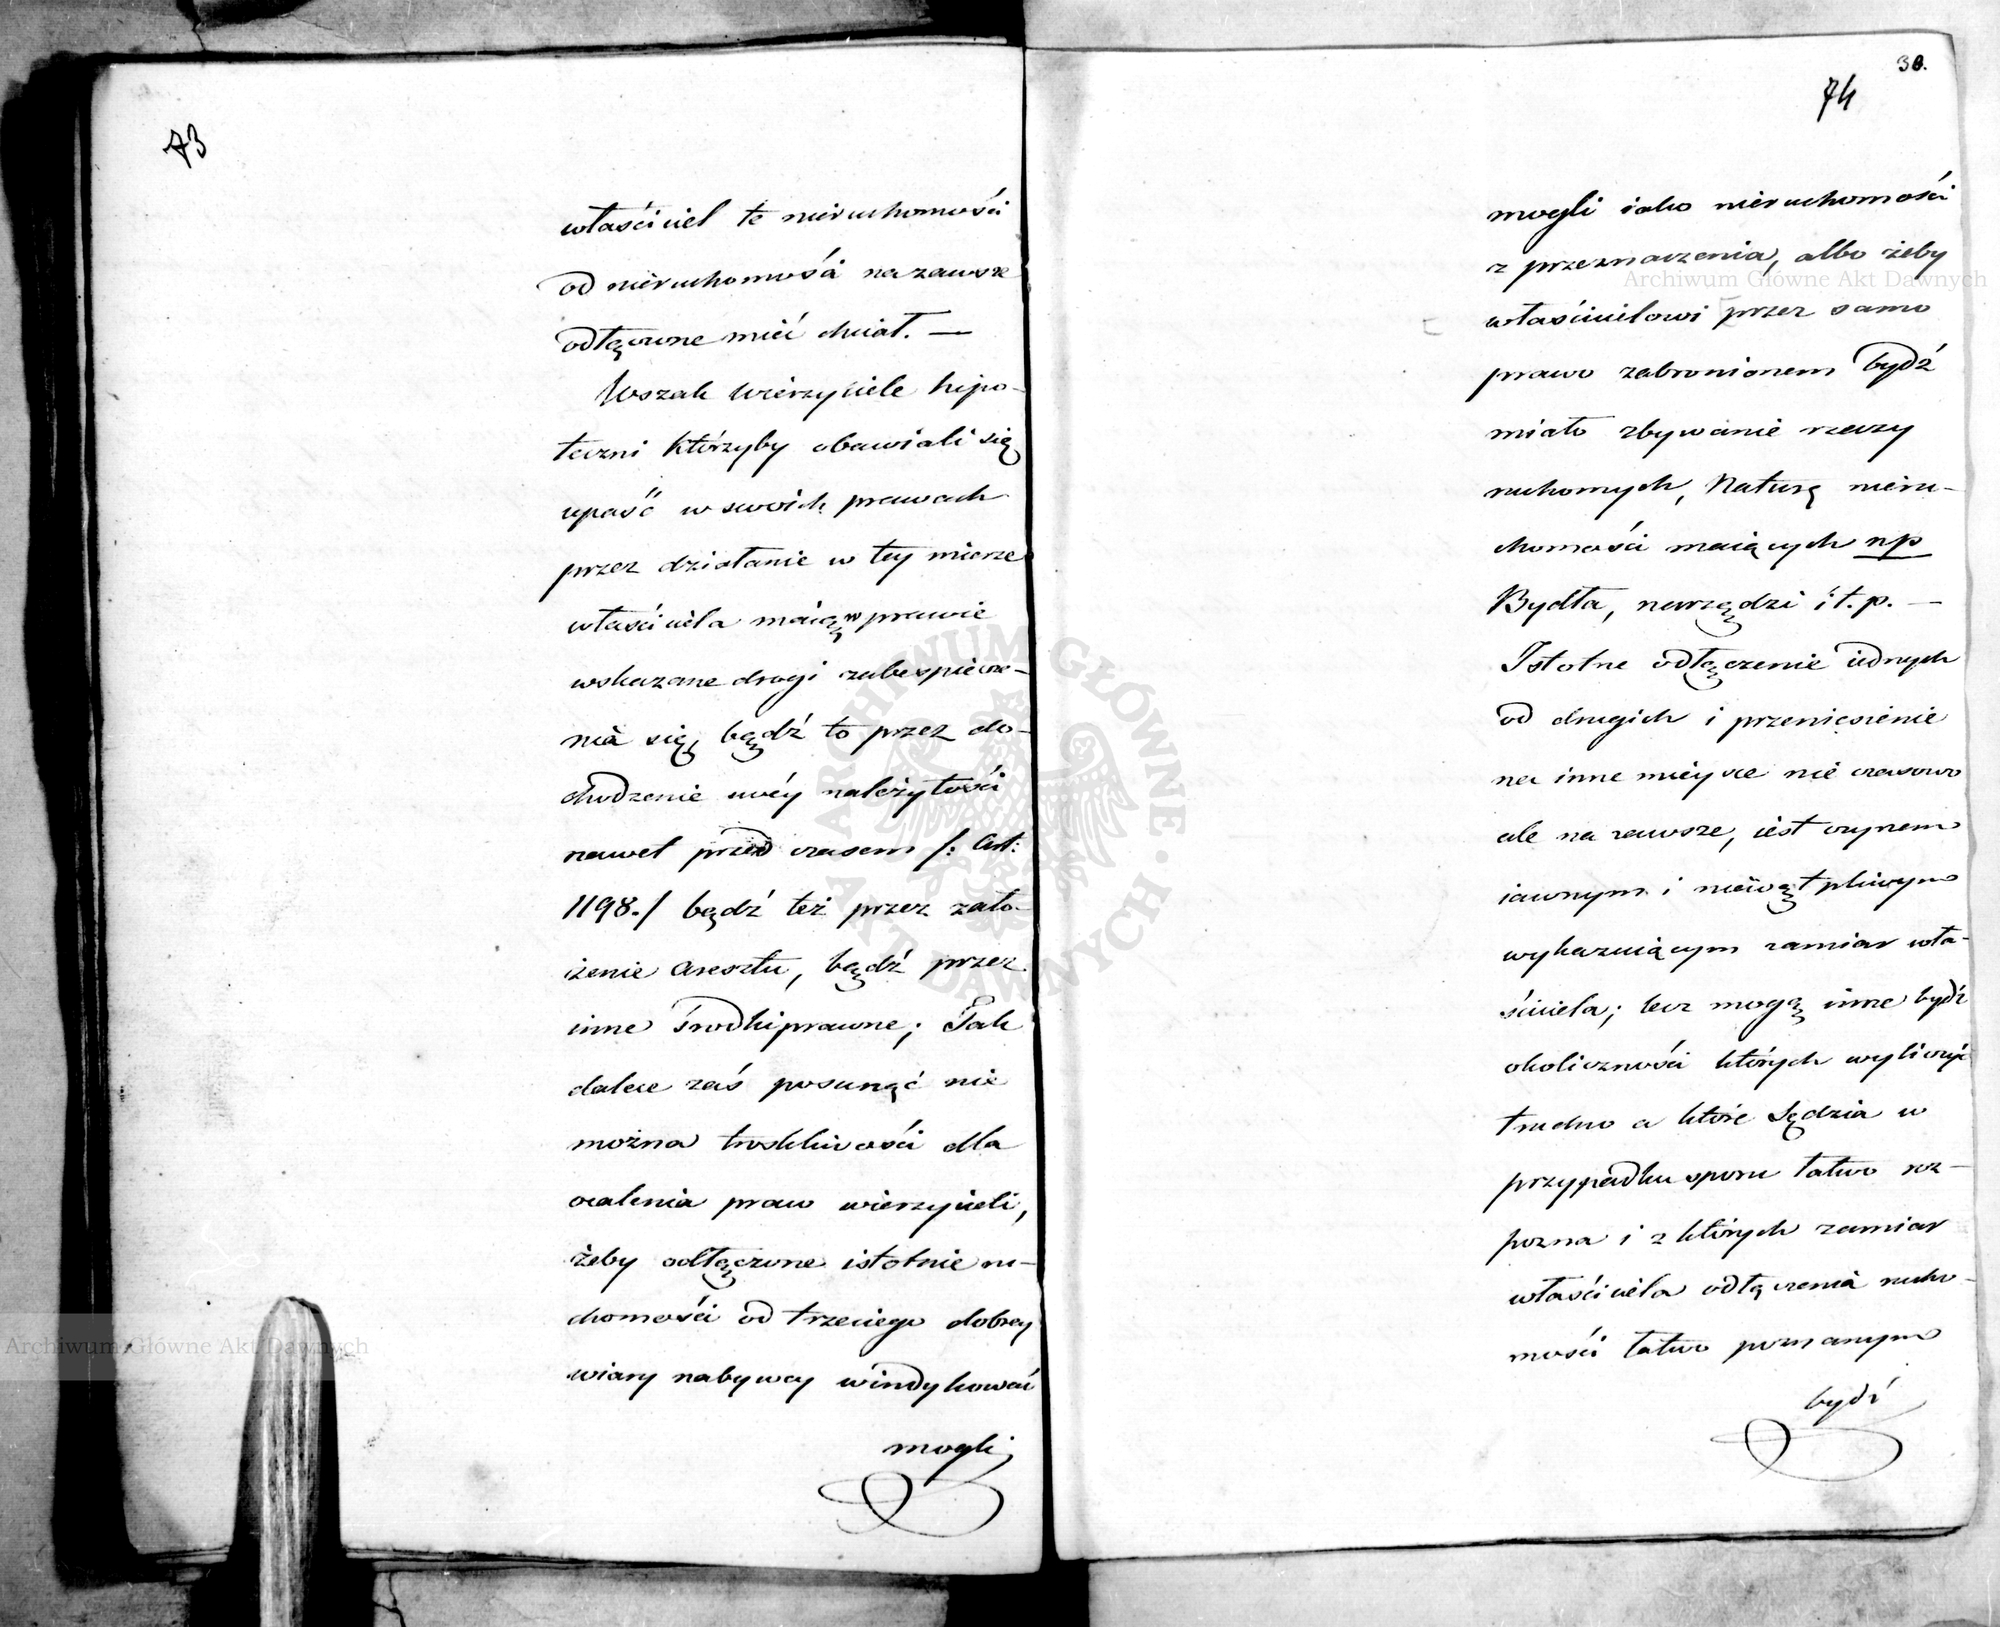 73
właściciel te nieruchomości
od nieruchomości na zawsze
odłączone mieć chciał. —
Wszak wierzyciele hipo-
teczni którzyby obawiali się
upaść w swoich prawach
przez działanie w tey mierze
właściciela maią w prawie
wskazane drogi zabespiecze-
nia się, bądź to przez do-
chodzenie swéy należytości
nawet przed czasem /: Art:
1198./ bądź też przez zało-
żenie aresztu, bądź przez
inne środki prawne; Tak
dalece zaś posunąć nie
można troskliwości dla
ocalenia praw wierzycieli,
żeby odłączone istotnie ru-
chomości od trzeciego dobrey
wiary nabywcy windykować
mogli
30.
74
mogli iako nieruchomości
z przeznaczenia, albo żeby
właścicielowi przez samo
prawo zabronionem bydź
miało zbywanie rzeczy
ruchomych, Naturę nieru-
chomości maiących np
Bydła, narzędzi i t. p. —
Istotne odłączenie iednych
od drugich i przeniesienie
na inne mieysce nie czasowo
ale na zawsze, iest czynem
iawnym i niewątpliwym
wykazuiącym zamiar wła-
ściciela; lecz mogą inne bydź
okoliczności których wyliczyć
trudno a które Sędzia w
przypadku sporu łatwo roz-
pozna i z których zamiar
właściciela odłączenia rucho-
mości łatwo poznanym
bydź
Archiwum Główne Akt Dawnych
Archiwum Główne Akt Dawnych
ARCHIWUM GŁÓWNE AKT DAWNYCH